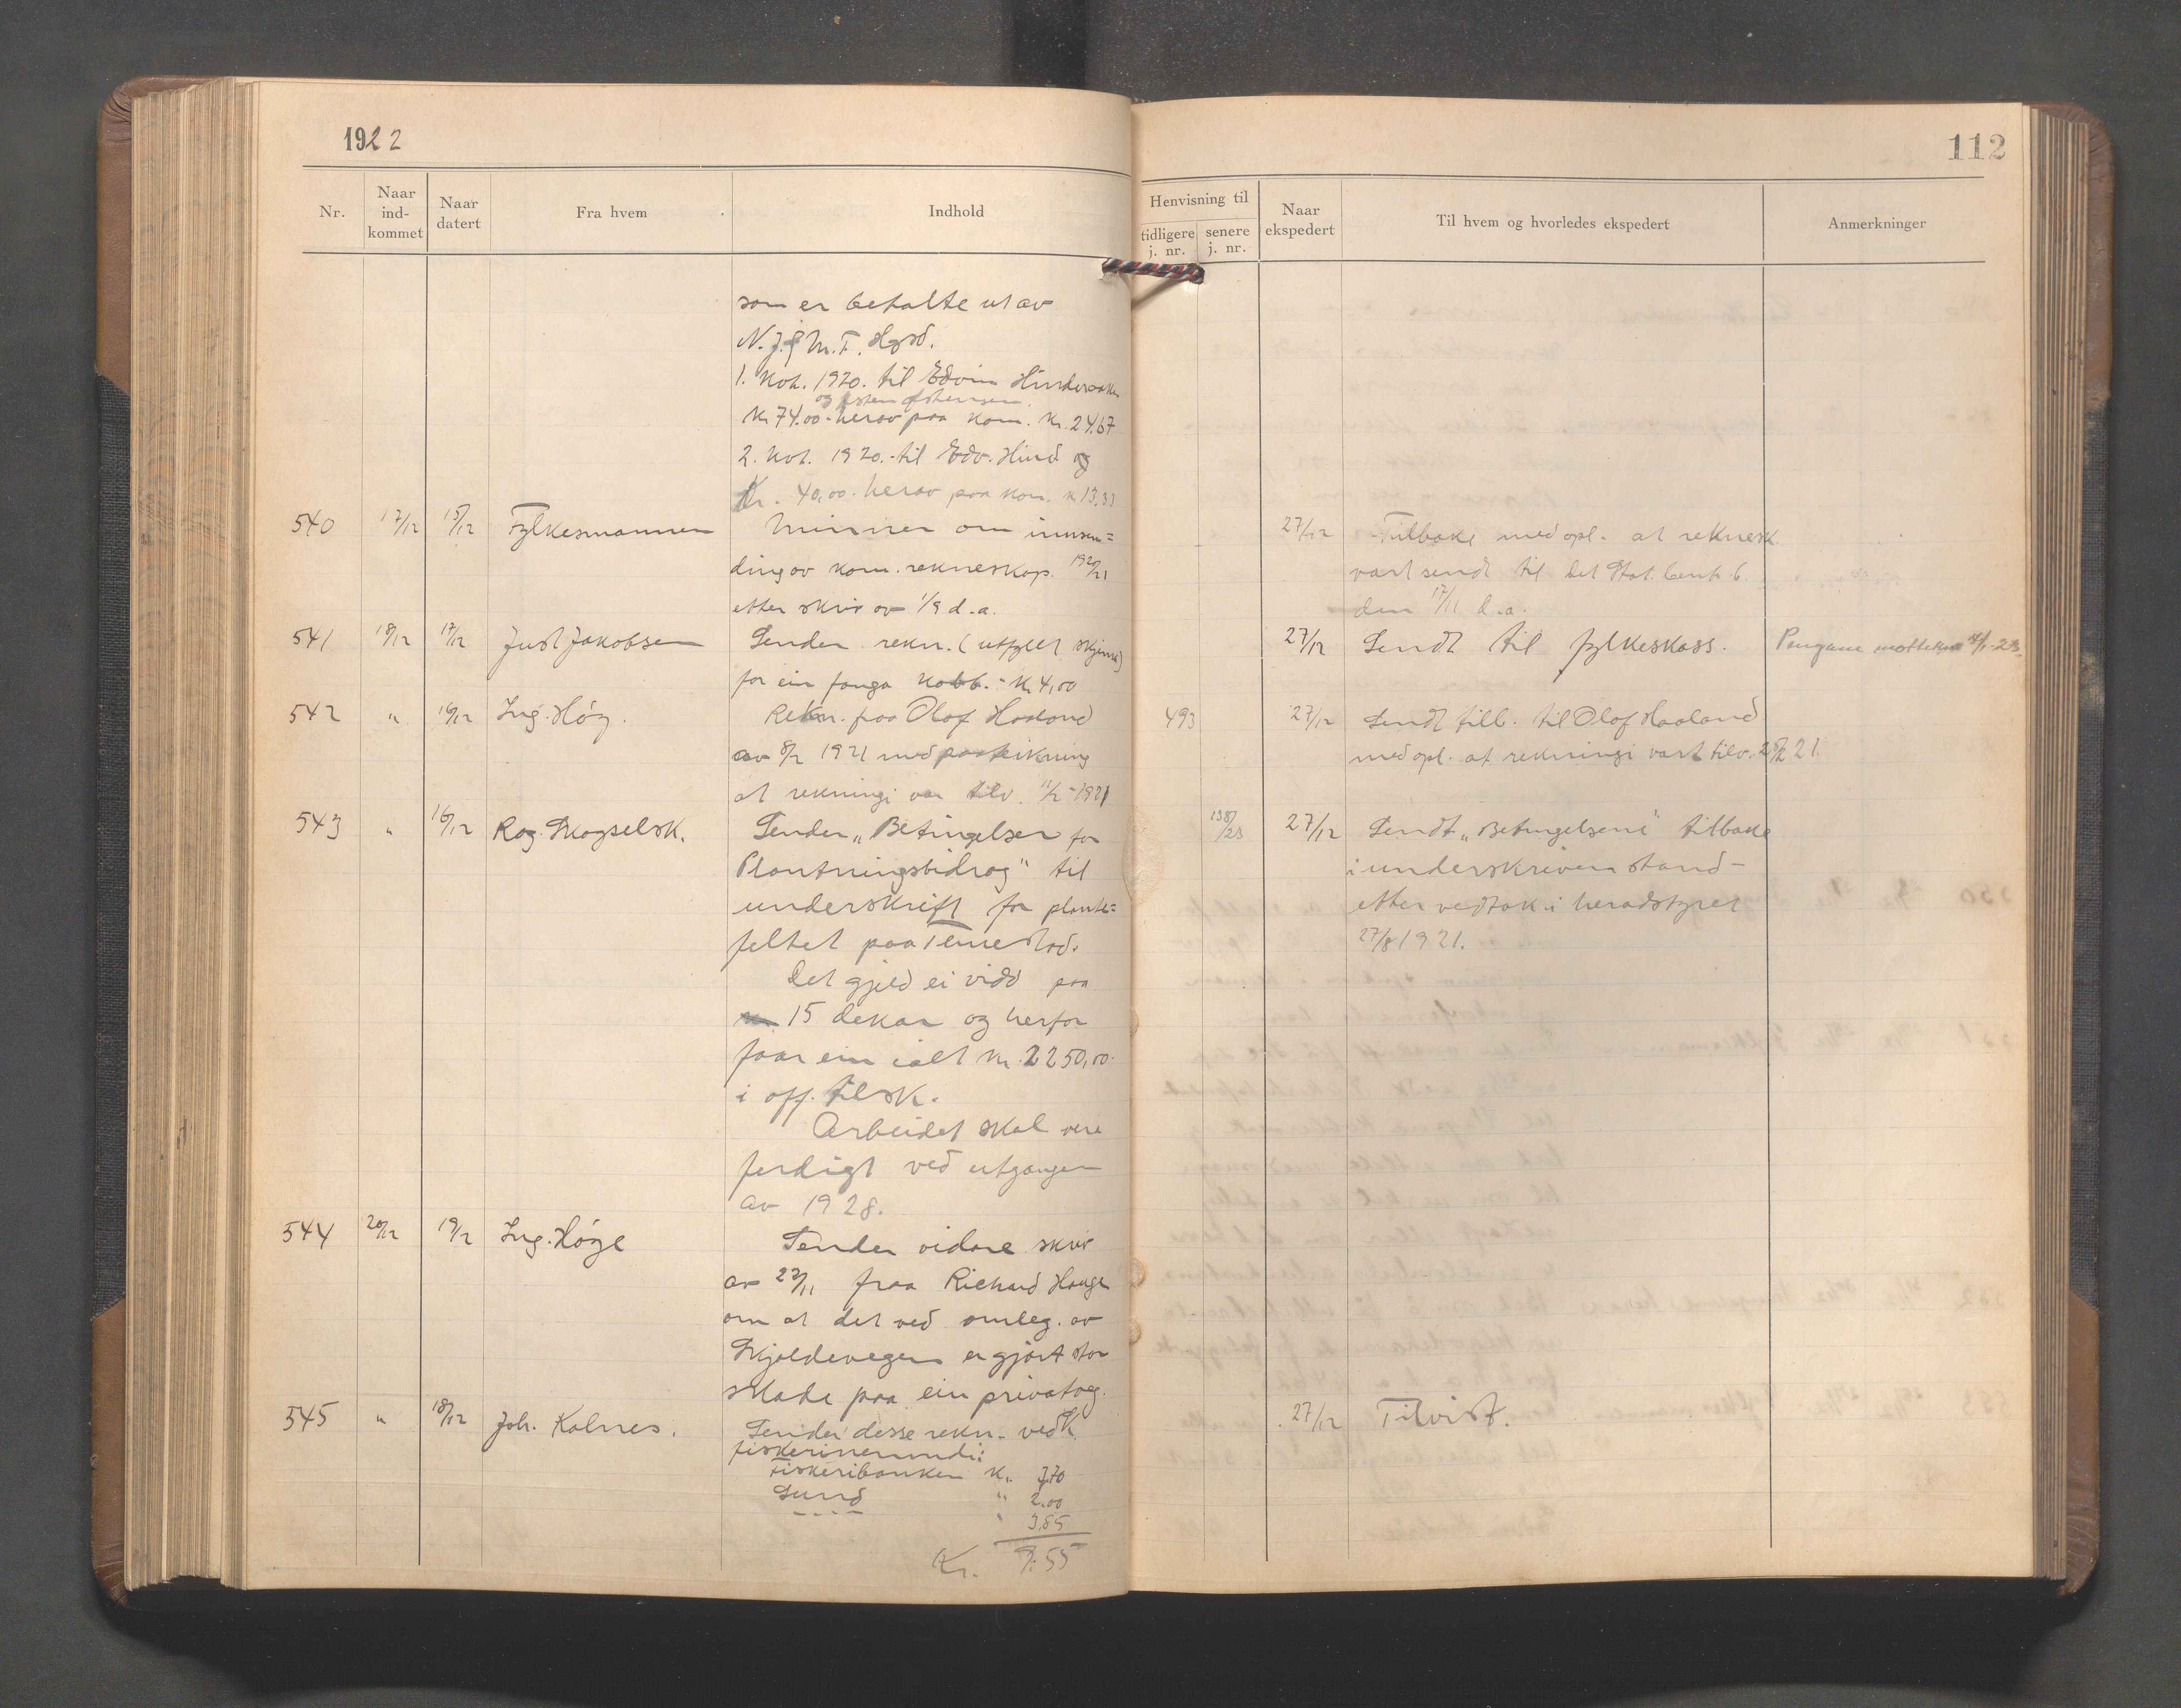 1922
112
Nr.
Naar ind-kommet
Naar datert
Fra hvem
Indhold
Henvisning til
tidligere j. nr.
senere j. nr.
Naar ekspedert
Til hvem og hvorledes ekspedert
Anmerkninger
som er betalte ut av
1. Nov. 1920. til Edvin
Kr 74.00 - herav paa kom. Kr. 24.67
2. Nov. 1920. - til Edv. Hind og
Kr. 40,00 - herav paa kom. kr 13,33
540 17/12 15/12 Fylkesmannen Minner om innsen= 27/12 Tilbake med opl. at reknesk
ding av kom. rekneskap. 1920/21 vart sendt til Det Stat. Cent. b.
etter skriv av 1/9 d.a. den 17/11 d.a.
541 18/12 17/12 Just Jakobsen Sender rekn. (utfyllt skjema) 27/12 Sendt til fylkeskass. Pengane mottekne 4/1-23.
for ein fanga kobb. - Kr. 4,00
542 " 16/12 Ing. Høg. Rekn. fraa Olaf Haaland 493 27/12 Sendt tilb. til Olaf Haaland
av 8/2 1921 med paateikning med opl. at rekningi vart tilv. 21.
at rekningi var tilv. 11/2-1921
543 " 16/12 Rog. Skogselsk. Sender „Betingelser for 138/23 27/12 Sendt „Betingelsene" tilbake
Plantningsbidrag" til i underskriven stand -
underskrift for plante= etter vedtak i heradstyret
feltet paa 27/8 1921.
Det gjeld ei vidd paa
kr. 15 dekar og herfor
faar ein ialt kr. 2250,00.
i off. tilsk.
Arbeidet skal vera
ferdigt ved utgangen
av 1928.
544 20/12 19/12 Ing. Høge Sender vidare skriv
av 27/11 fraa Richard Hauge
om at det ved omleg. av
Skjoldevegen er gjort stor
skade paa ein privatveg.
545 " 18/12 Joh. Kalnes. Sender desse rekn. vedk. 27/12 Tilvist.
fiskerinemndi:
Fiskeribanken Kr. 3,70
Sund " 2,00
- - - - " 3,85
Kr. 9:55